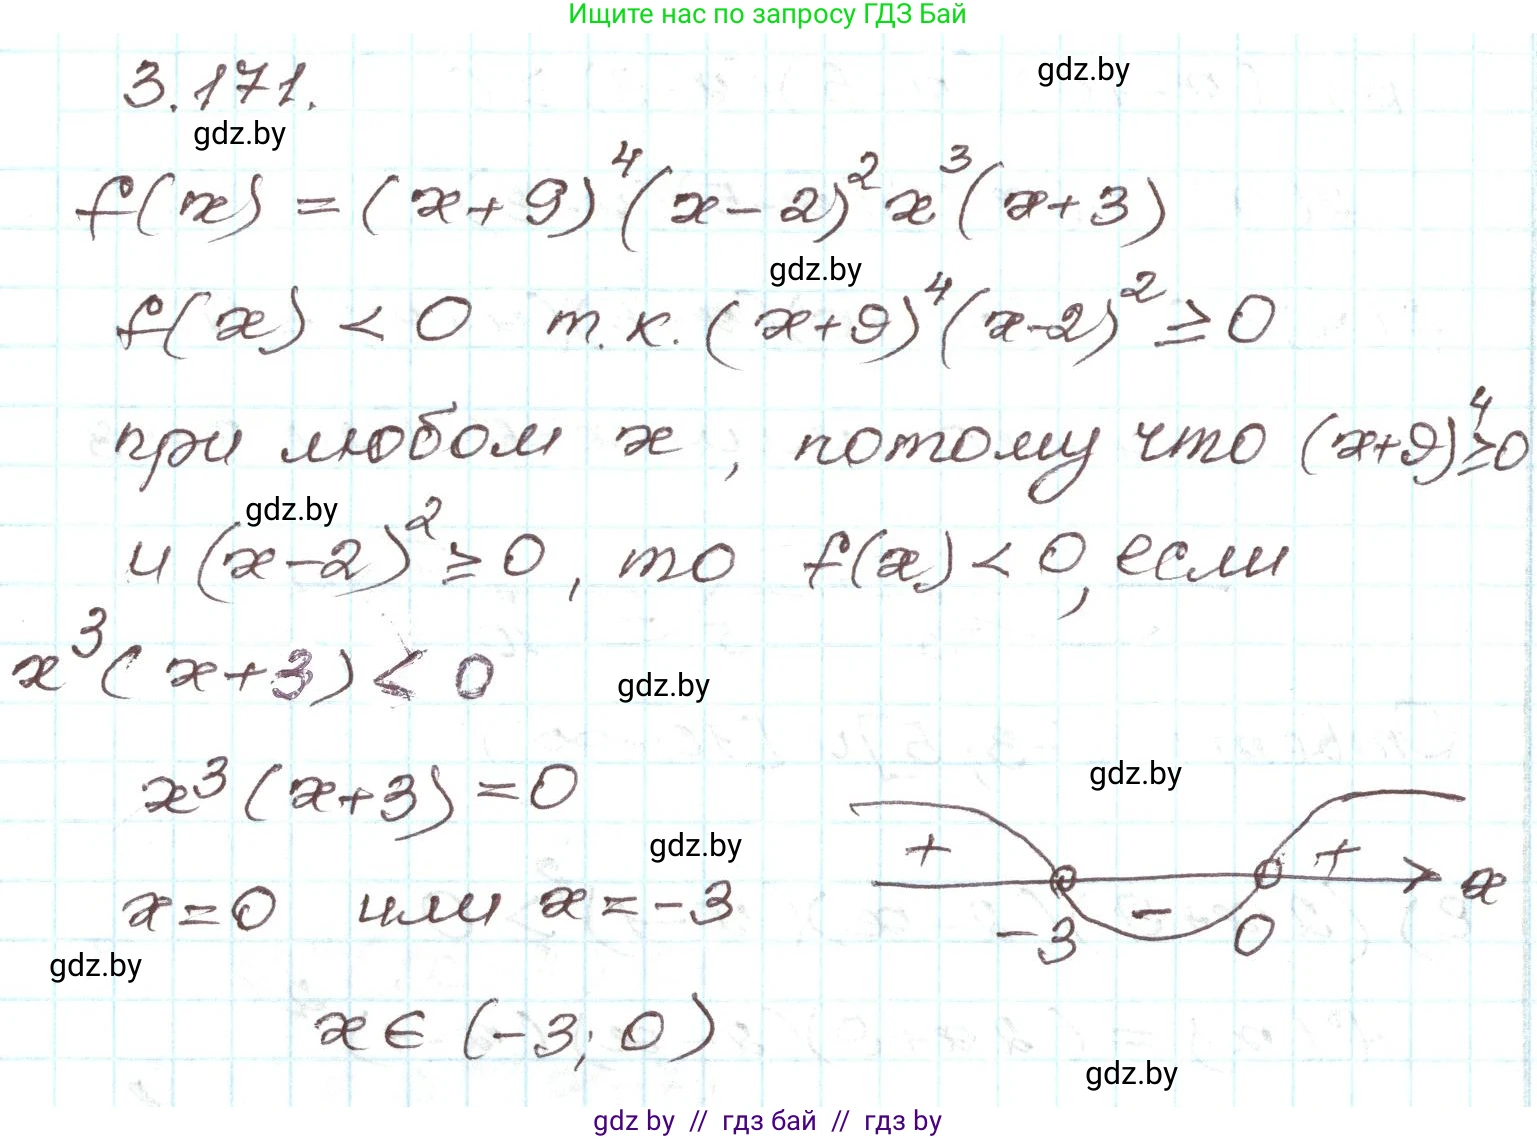 Ищите нас по запросу ГДЗ Бай
3.171.
gdz.by
gdz.by
f(x) = (x+9)⁴(x-2)²x³(x+3)
gdz.by
f(x) < 0 т.к. (x+9)⁴(x-2)² ≥ 0
при любом x, потому что (x+9)⁴≥0
gdz.by
и (x-2)² ≥ 0, то f(x) < 0, если
x³(x+3) < 0
gdz.by
x³(x+3) = 0
gdz.by
gdz.by
+ - + x
-3 0
x=0 или x=-3
gdz.by
x ∈ (-3; 0)
gdz.by
gdz by // гдз бай // гдз by